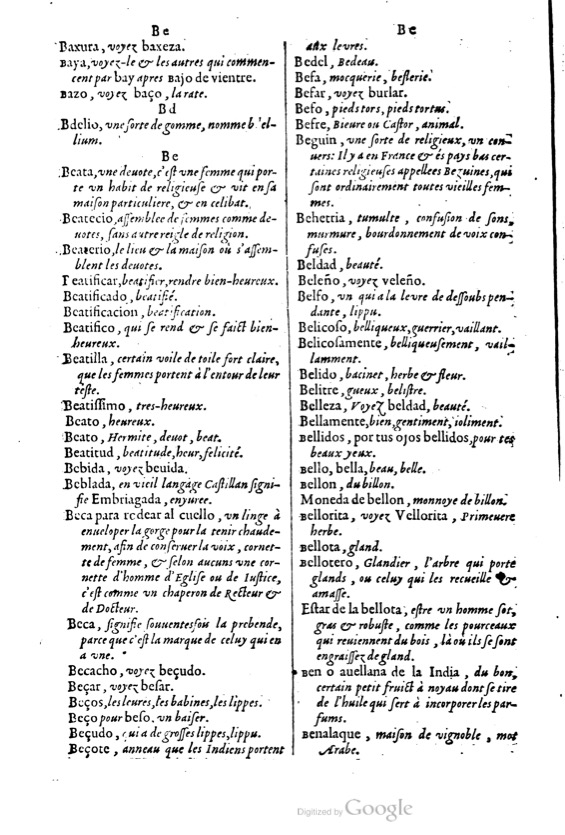 Be
Baxura, voyez baxeza.
Baya, voyez-le & les autres qui commen-
cent par bay apres Bajo de vientre.
Bazo, voyez baço, la rate.
Bd
Bdelio, vne sorte de gomme, nommeb 'el-
lium.
Be
Beata, vne deuote, c'est vne femme qui por-
te vn habit de religieuse & vit en sa
maison particuliere, & en celibat.
Beatecio, assemblee de femmes comme de-
uotes, sans autre reigle de religion.
Beaterio, le lieu & la maison où s'assem-
blent les deuotes.
Beatificar, beatifier, rendre bien-heureux.
Beatificado, beatifié.
Beatificacion, beatification.
Beatifico, qui se rend & se faict bien-
heureux.
Beatilla, certain voile de toile fort claire,
que les femmes portent à l'entour de leur
teste.
Beatissimo, tres-heureux.
Beato, heureux.
Beato, Hermite, deuot, beat.
Beatitud, beatitude, heur, felicité.
Bebida, voyez beuida.
Beblada, en vieil langage Castillan signi-
fie Embriagada, enyuree.
Beca para redear al cuello, vn linge à
enueloper la gorge pour la tenir chaude-
ment, afin de conseruer la voix, cornet-
te de femme, & selon aucuns vne cor-
nette d'homme d'Eglise ou de Iustice,
c'est comme vn chaperon de Recteur &
de Docteur.
Beca, signifie souuentesfou la prebende,
parce que c'est la marque de celuy qui en
a vne.
Becacho, voyez beçudo.
Beçar, voyez besar.
Beços, les leures, les babines, les lippes.
Beço pour beso, vn baiser.
Beçudo, qui a de grosses lippes, lippu.
Beçote, anneau que les Indiens portent
Be
aux leures.
Bedel, Bedeau.
Befa, mocquerie, besterie.
Befar, voyez burlar.
Befo, pieds tors, pieds tortus.
Befre, Bieure ou Castor, animal.
Beguin, vne sorte de religieux, vn con-
uers: Il y a en France & és pays bas cer-
taines religieuses appellees Beguines, qui
sont ordinairement toutes vieilles fem-
mes.
Behetria, tumulte, confusion de sons,
murmure, bourdonnement de voix con-
fuses.
Beldad, beauté.
Beleño, voyez veleño.
Belfo, vn qui a la levre de dessoubs pen-
dante, lippu.
Belicoso, belliqueux, guerrier, vaillant.
Belicosamente, belliqueusement, vail-
lamment.
Belido, bacinet, herbe & fleur.
Belitre, gueux, belistre.
Belleza, Voyez beldad, beauté.
Bellamente, bien, gentiment, ioliment.
Bellidos, por tus ojos bellidos, pour tes
beaux yeux.
Bello, bella, beau, belle.
Bellon, du billon.
Moneda de bellon, monnoye de billon.
Bellorita, voyez Vellorita, Primeuere
herbe.
Bellota, gland.
Bellotero, Glandier, l'arbre qui porte
glands, ou celuy qui les recueille &
amasse.
Estar de la bellota, estre vn homme sot,
gras & robuste, comme les pourceaux
qui reuiennent du bois, là ou ils se sont
engraissez de gland.
Ben o auellana de la India, du ben,
certain petit fruict à noyau dont se tire
de l'huile qui sert à incorporer les par-
fums.
Benalaque, maison de vignoble, mot
Arabe.
Digitized by Google